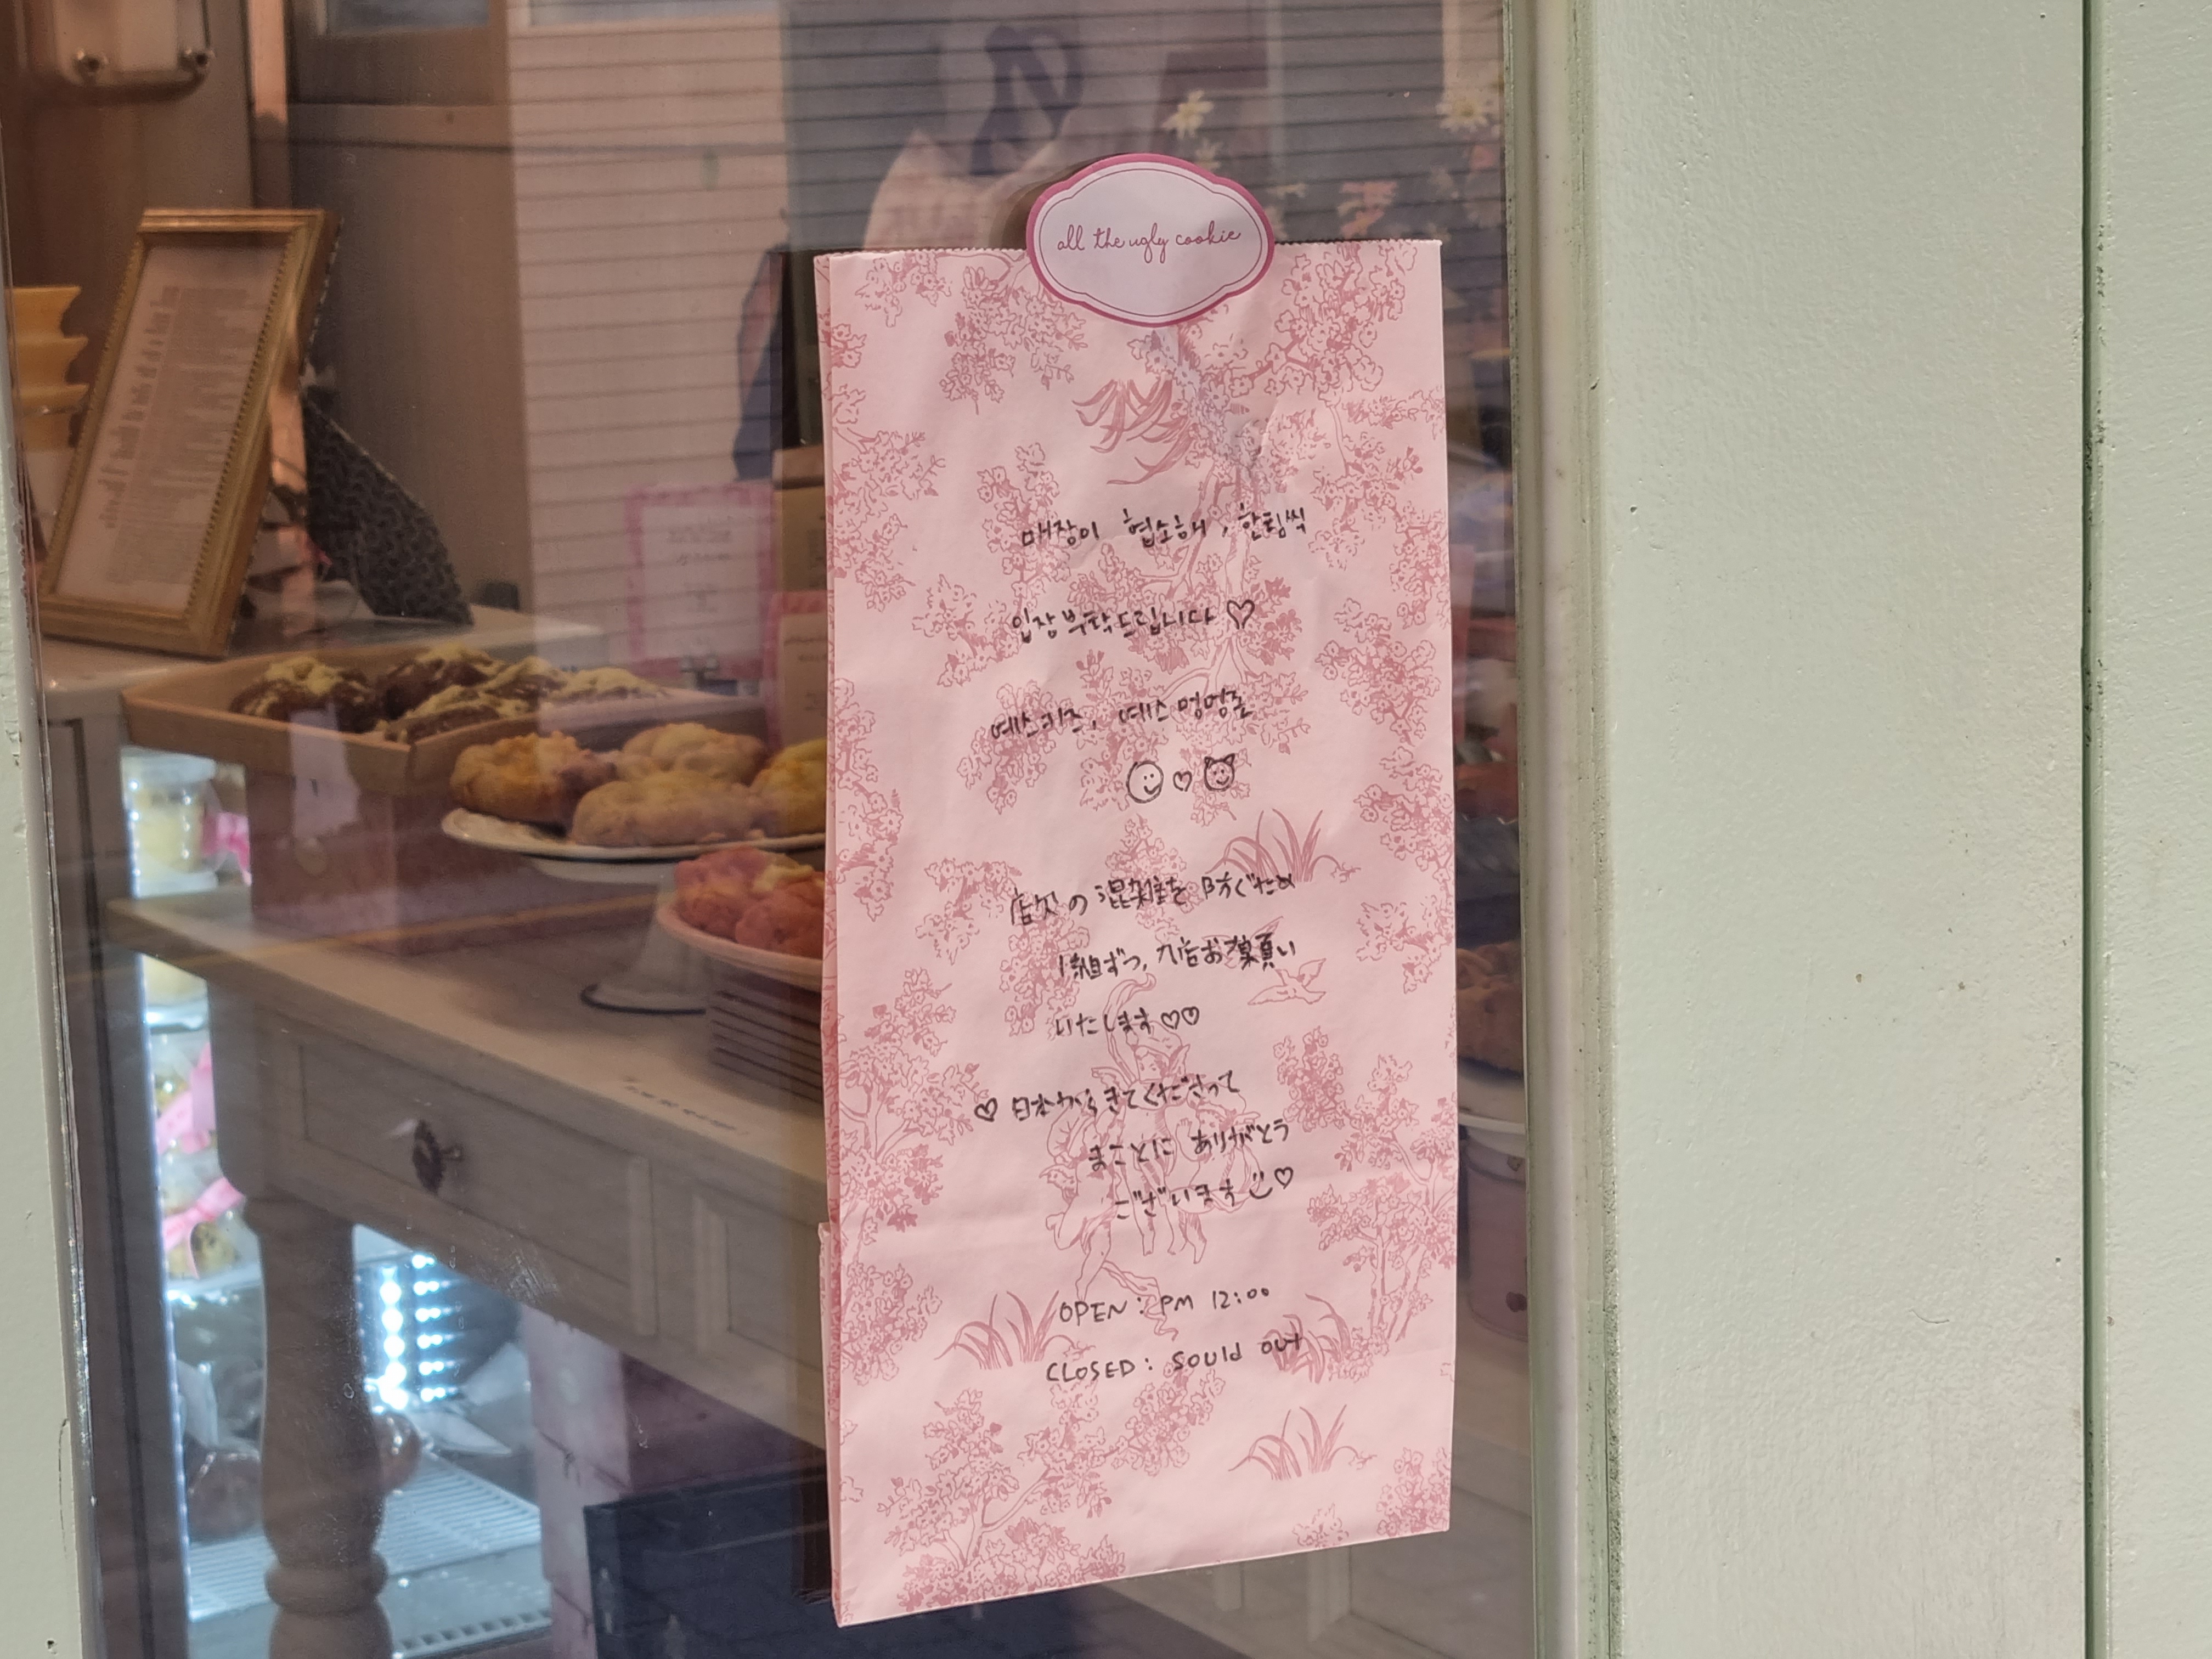 all the ugly cookie
매장이 협소해, 한팀씩
입장부탁드립니다♡
예스키즈, 예스멍멍존
店内の混雑を防ぐため
1組ずつ, 入店お願い
いたします♡♡
♡ 日本からきてくださって
まことに ありがとう
ございます♡
OPEN: PM 12:00
CLOSED: Sould out